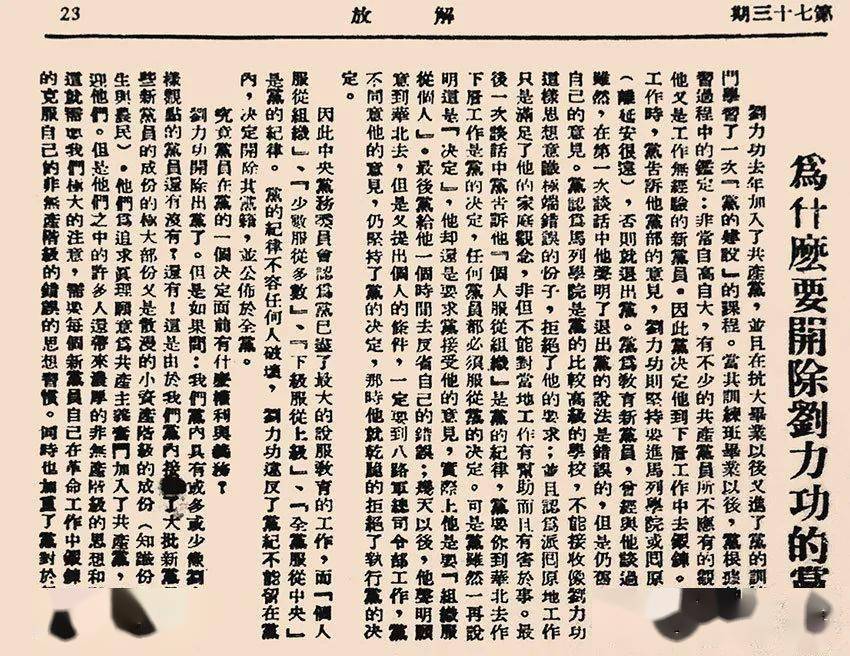 第七十三期
解放
23
爲什麽要開除劉力功的黨
劉力功去年加入了共產黨，並且在抗大畢業以後又進了黨的訓
門學習了一次『黨的建設』的課程。當其訓練班畢業以後，黨根據
習過程中的鑑定：非常自高自大，有不少的共產黨員所不應有的觀
他又是工作無經驗的新黨員。因此黨決定他到下層工作中去鍛鍊。
工作時，黨告訴他黨部的意見，劉力功則堅持要進馬列學院或囘原
（離延安很遠），否則就退出黨。黨爲教育新黨員，曾經與他談過
雖然，在第一次談話中他聲明了退出黨的說法是錯誤的，但是仍舊
自己的意見。黨認爲馬列學院是黨的比較高級的學校，不能接收像劉力功
這樣思想意識極端錯誤的份子，拒絕了他的要求；並且認爲派囘原地工作
只是滿足了他的家庭觀念，非但不能對當地工作有幫助而且有害於事。最
後一次談話中黨告訴他『個人服從組織』是黨的紀律，黨要你到華北去作
下層工作是黨的決定，任何黨員都必須服從黨的決定。可是黨雖然一再說
明這是『決定』，他却還是要求黨接受他的意見，實際上他是要『組織服
從個人』。最後黨給他一個時間去反省自己的錯誤；幾天以後，他聲明願
意到華北去，但是又提出個人的條件，一定要到八路軍總司令部工作，黨
不同意他的意見，仍堅持了黨的決定，那時他就乾脆的拒絕了執行黨的決
定。
因此中央黨務委員會認爲黨已盡了最大的說服教育的工作，而『個人
服從組織』、『少數服從多數』、『下級服從上級』、『全黨服從中央』
是黨的紀律。黨的紀律不容任何人破壞，劉力功違反了黨紀不能留在黨
內，決定開除其黨籍，並公佈於全黨。
究竟黨員在黨的一個決定面前有什麽權利與義務？
劉力功開除出黨了。但是如果問：我們黨內具有或多或少像劉
樣觀點的黨員還有沒有？還有！這是由於我們黨內接了大批新黨
些新黨員的成份的極大部份又是散漫的小資產階級的成份（知識份
生與農民），他們爲追求眞理願意爲共產主義奮鬥加入了共產黨，
迎他們。但是他們之中的許多人還帶來濃厚的非無產階級的思想和
這就需要我們極大的注意，需要每個新黨員自己在革命工作中鍛鍊
的克服自己的非無產階級的錯誤的思想習慣。同時也加重了黨對於